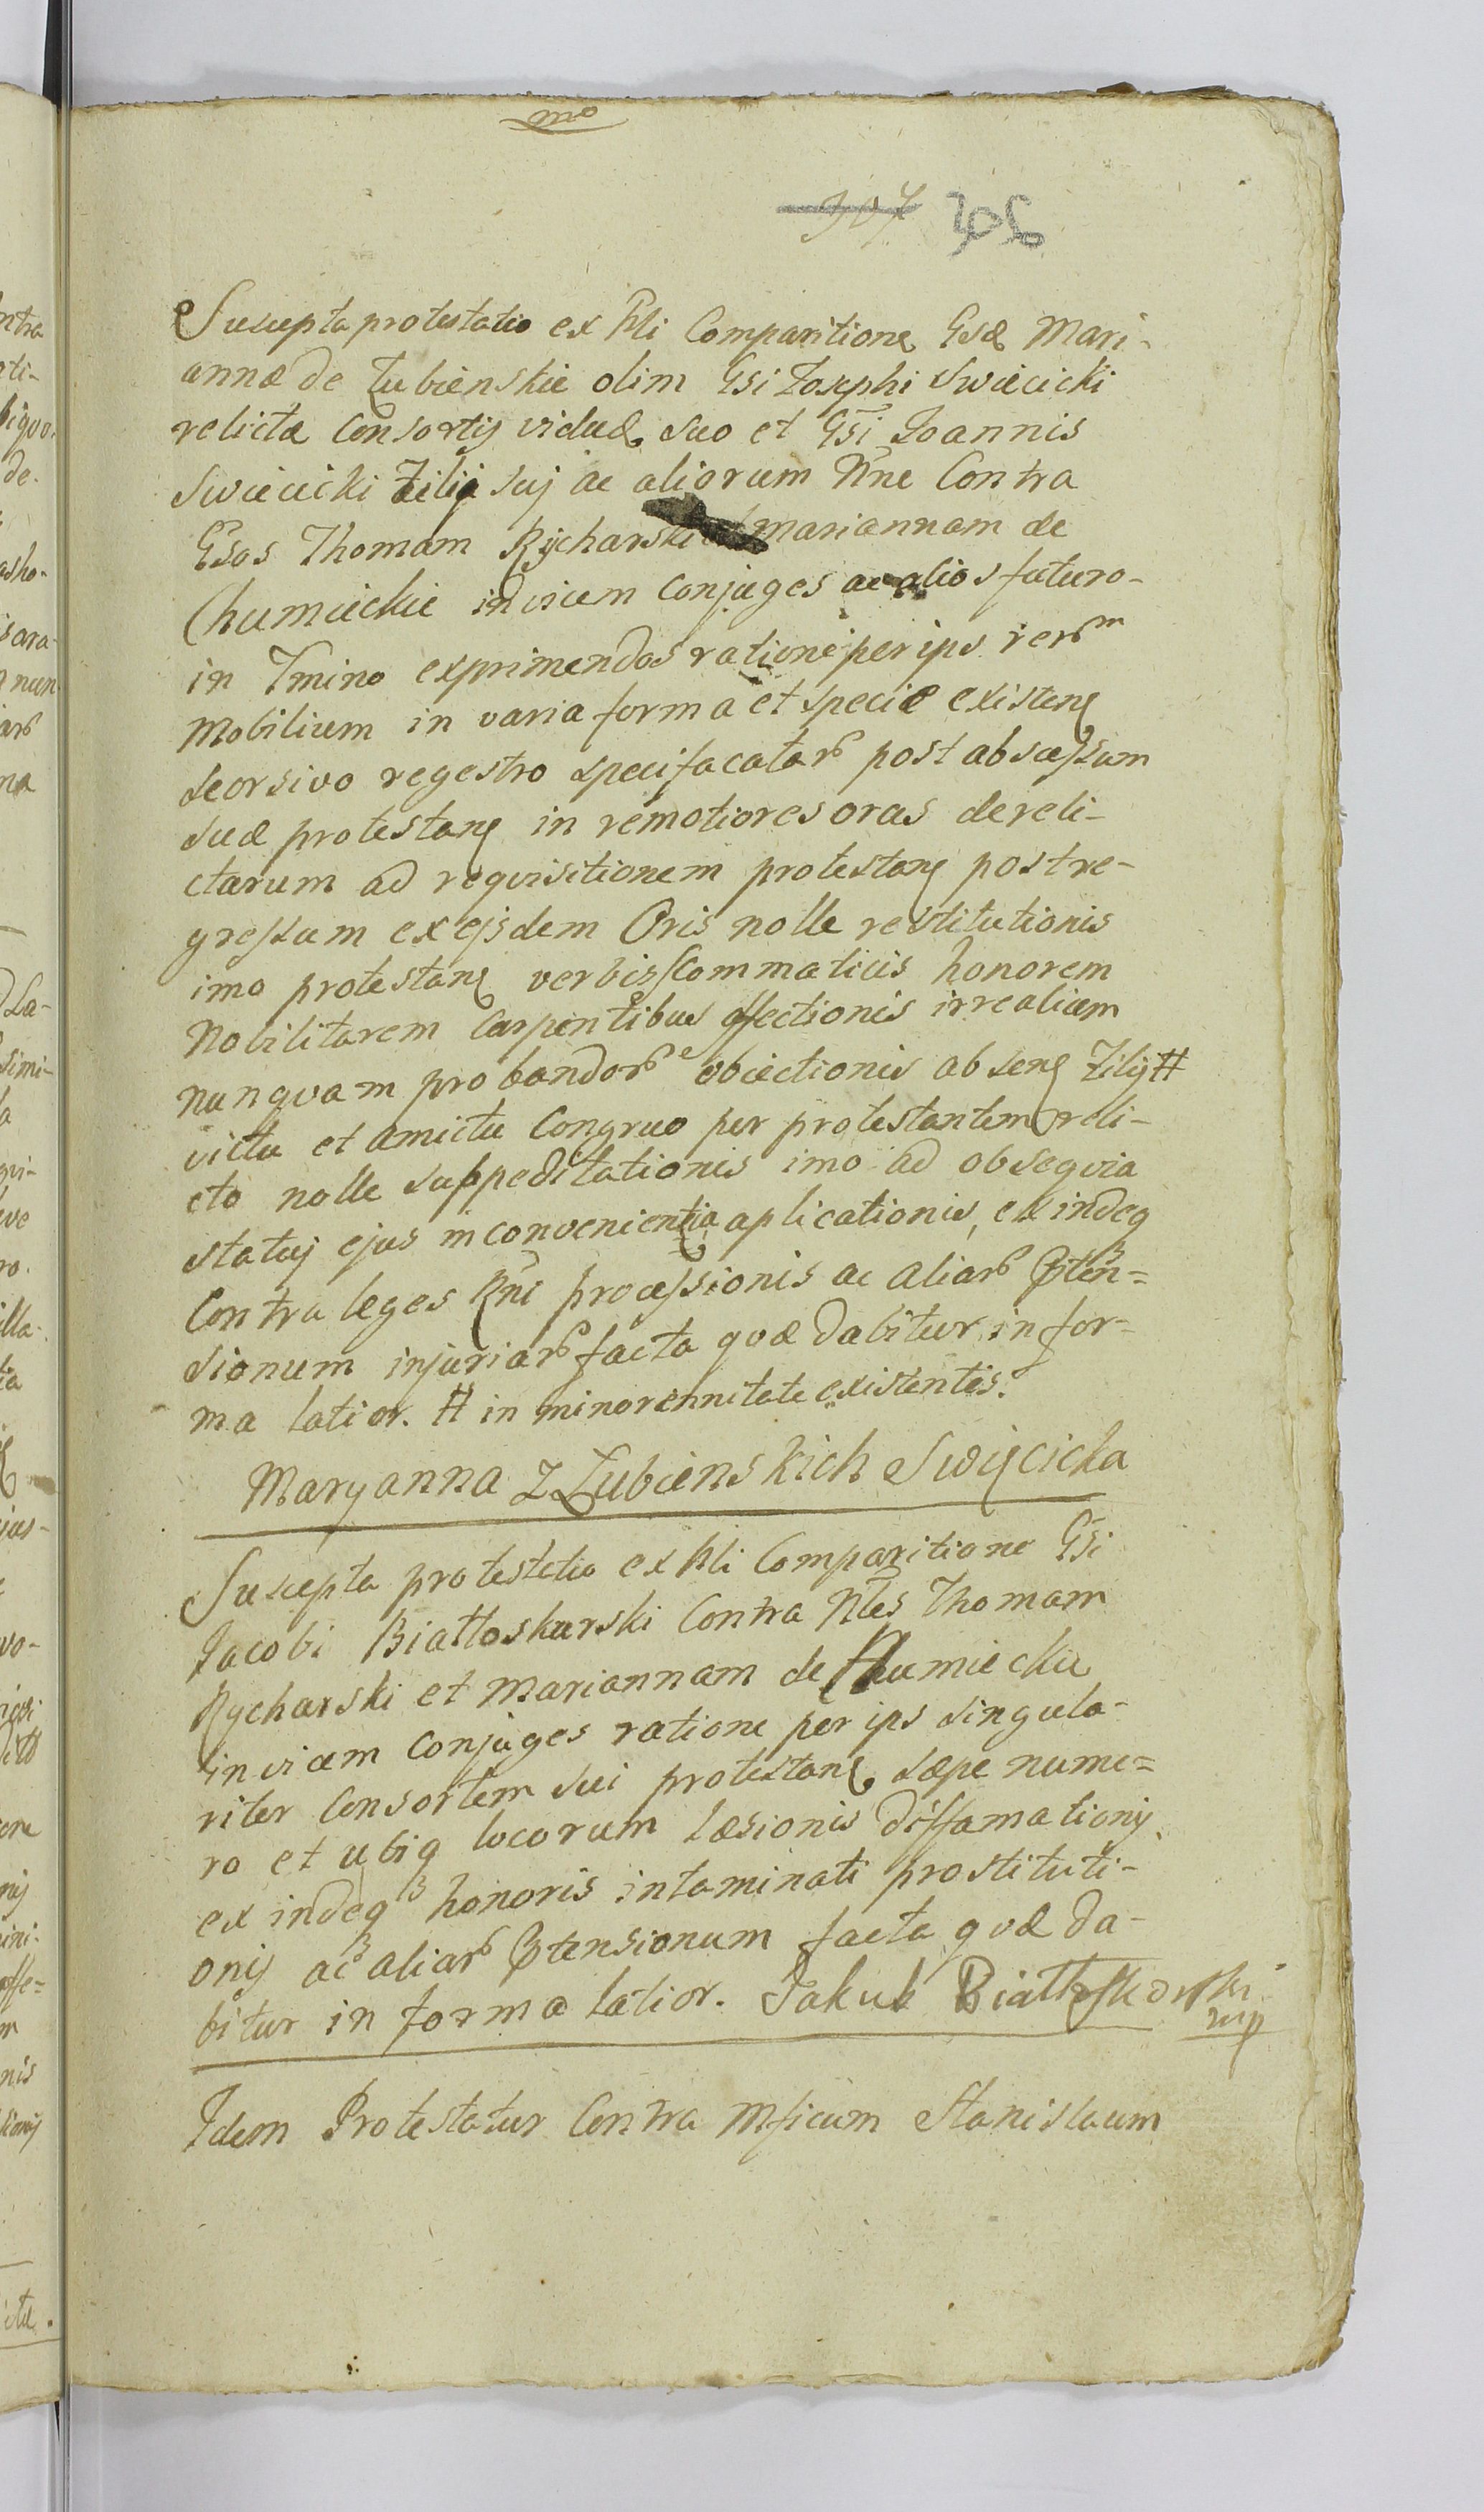 mo
307 306
Suscepta protestatio ex Pli Comparitione Gsæ Mari-
annæ de Łubienskie olim Gsi Josephi Swiecicki
relictæ Consortis viduæ suo et Gsi Joannis
Swiecicki Filij suj ac aliorum Nne Contra
Gsos Thomam Rycharski et Mariannam de
Chumieckie invicem conjuges ac alios futuro
in Tmino exprimendos ratione per ips rerum
Mobilium in varia forma et specie existen
seorsivo regestro specifacatar post abscessum
suæ protestan in remotiores oras dereli-
ctarum ad requisitionem protestan post re-
gressum ex ejsdem Oris nolle restitutionis
imo protestan verbis scommaticis honorem
Nobilitarem Carpentibus affectionis irrealium
nunquam probandor obiectionis absen Filij #
victu et amictu Congruo per protestantem reli-
cto nolle suppeditationis imo ad obsequia
statuj ejus inconvenientia aplicationis, exindeq
Contra leges Rni processionis ac aliar Pten=
sionum injuriar facta quæ dabitur in for=
ma latior. # in minorennitate existentis.
Maryanna z Łubienskich Swięcicka
Suscepta protestatio ex Pli Comparitione Gsi
Jacobi Białłoskurski Contra Nles Thomam
Rycharski et Mariannam de Chumieckie
invicem conjuges ratione per ips singula-
riter Consortem sui protestan sæpe nume=
ro et ubiq locorum læsionis diffamationis
exindeq honoris intaminati prostituti-
onis ac aliar Ptensionum facta quæ da-
bitur in forma latior. Jakub Białłoskorski
mp
Idem Protestatur Contra Mficum Stanislaum